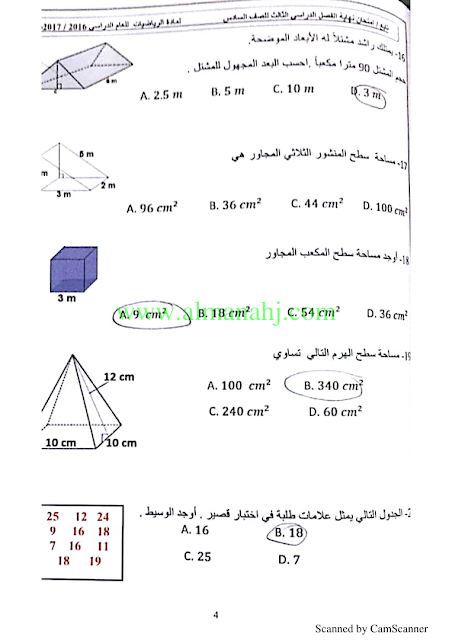 تابع / امتحان نهاية الفصل الدراسي الثالث للصف السادس لمادة الرياضيات للعام الدراسي 2016 / 2017
16- يمتلك راشد مشتلاً له الأبعاد الموضحة.
حجم المشتل 90 مترا مكعباً .احسب البعد المجهول للمشتل .
A. 2.5 m B. 5 m C. 10 m D. 3 m
17- مساحة سطح المنشور الثلاثي المجاور هي
5 m
m
3 m
2 m
A. 96 cm² B. 36 cm² C. 44 cm² D. 100 cm²
18- أوجد مساحة سطح المكعب المجاور
3 m
A. 9 cm² B. 18 cm² C. 54 cm² D. 36 cm²
www.almanahj.com
19- مساحة سطح الهرم التالي تساوي
12 cm
10 cm
10 cm
A. 100 cm² B. 340 cm²
C. 240 cm² D. 60 cm²
2- الجدول التالي يمثل علامات طلبة في اختبار قصير . أوجد الوسيط .
25 12 24
9 16 18
7 16 11
18 19
A. 16 B. 18
C. 25 D. 7
4
Scanned by CamScanner